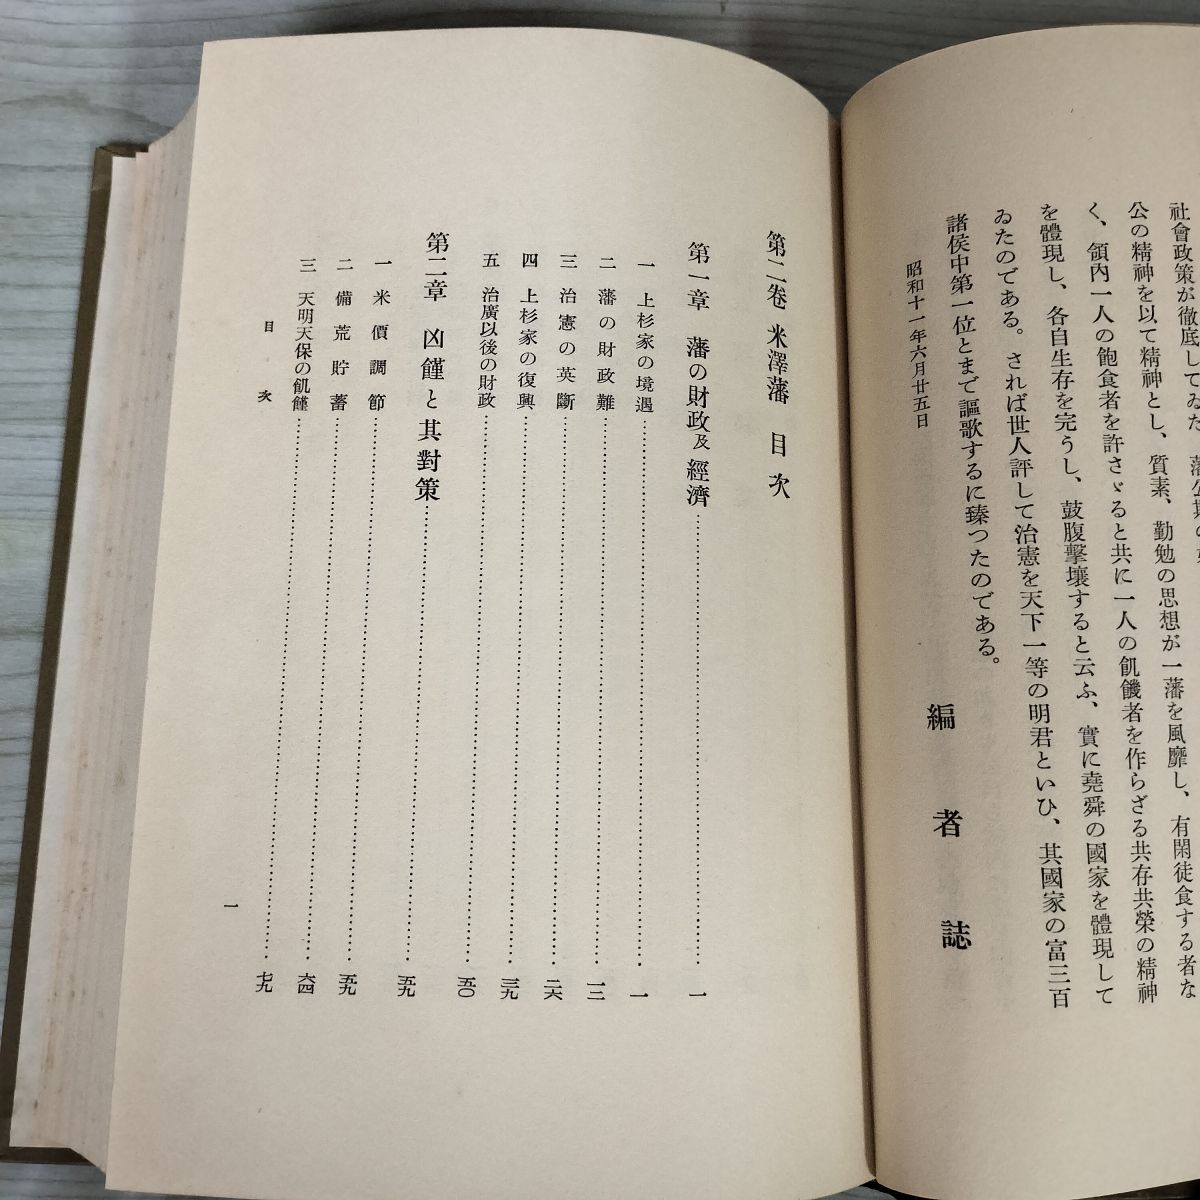 社會政策が徹底してゐた
公の精神を以て精神とし、質素、勤勉の思想が一藩を風靡し、有閑徒食する者な
く、領內一人の飽食者を許さゞると共に一人の飢饑者を作らざる共存共榮の精神
を體現し、各自生存を完うし、鼓腹擊壤すると云ふ、實に堯舜の國家を體現して
ゐたのである。されば世人評して治憲を天下一等の明君といひ、其國家の富三百
諸侯中第一位とまで謳歌するに臻つたのである。
昭和十一年六月廿五日
編者誌
第二卷 米澤藩 目次
第一章 藩の財政及經濟……一
一 上杉家の境遇……一
二 藩の財政難……一三
三 治憲の英斷……二六
四 上杉家の復興……三九
五 治廣以後の財政……五〇
第二章 凶饉と其對策……五九
一 米價調節……五九
二 備荒貯蓄……六四
三 天明天保の飢饉……七九
目次
一